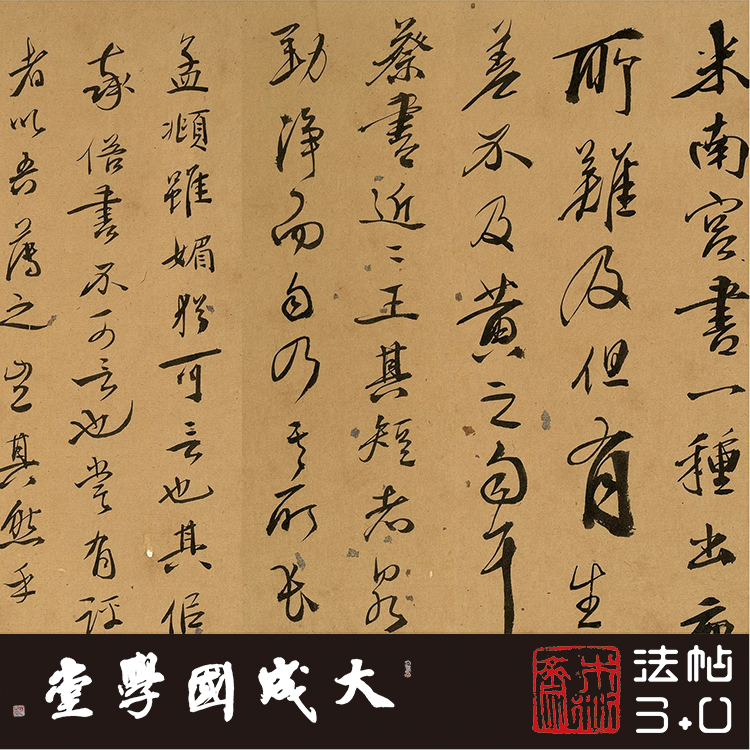 米南宮書一種出塵
所難及但有生
善不及黃之勻平
蔡書近二王其短者畧
勁淨而勻乃其所長
孟頫雖媚猶可言也其佀
率俗書不可言也嘗有評
者以吾薄之豈其然乎
大成國學堂
法帖
3.0